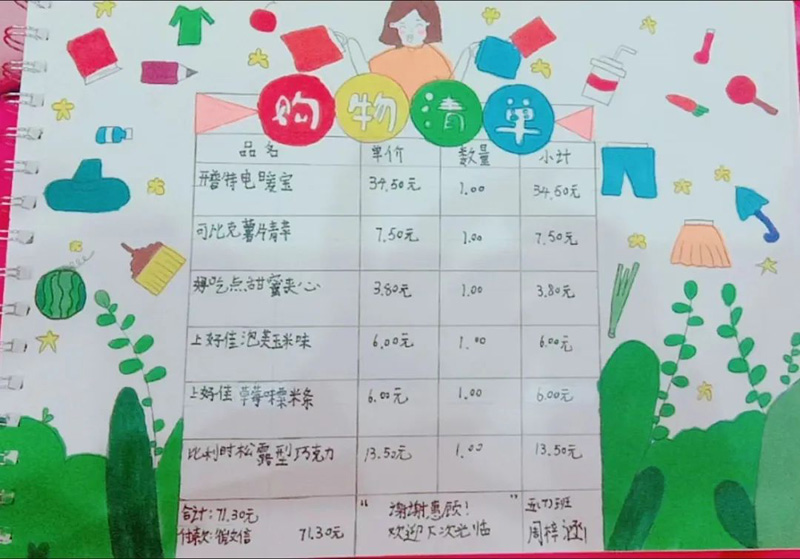 购物清单
品名 单价 数量 小计
开普特电暖宝 34.50元 1.00 34.50元
可比克薯片青苹 7.50元 1.00 7.50元
好吃点甜蜜夹心 3.80元 1.00 3.80元
上好佳泡芙玉米味 6.00元 1.00 6.00元
上好佳草莓味粟米条 6.00元 1.00 6.00元
比利时松露型巧克力 13.50元 1.00 13.50元
合计:71.30元 “谢谢惠顾!”
付款:微信 71.30元 欢迎下次光临 周梓涵